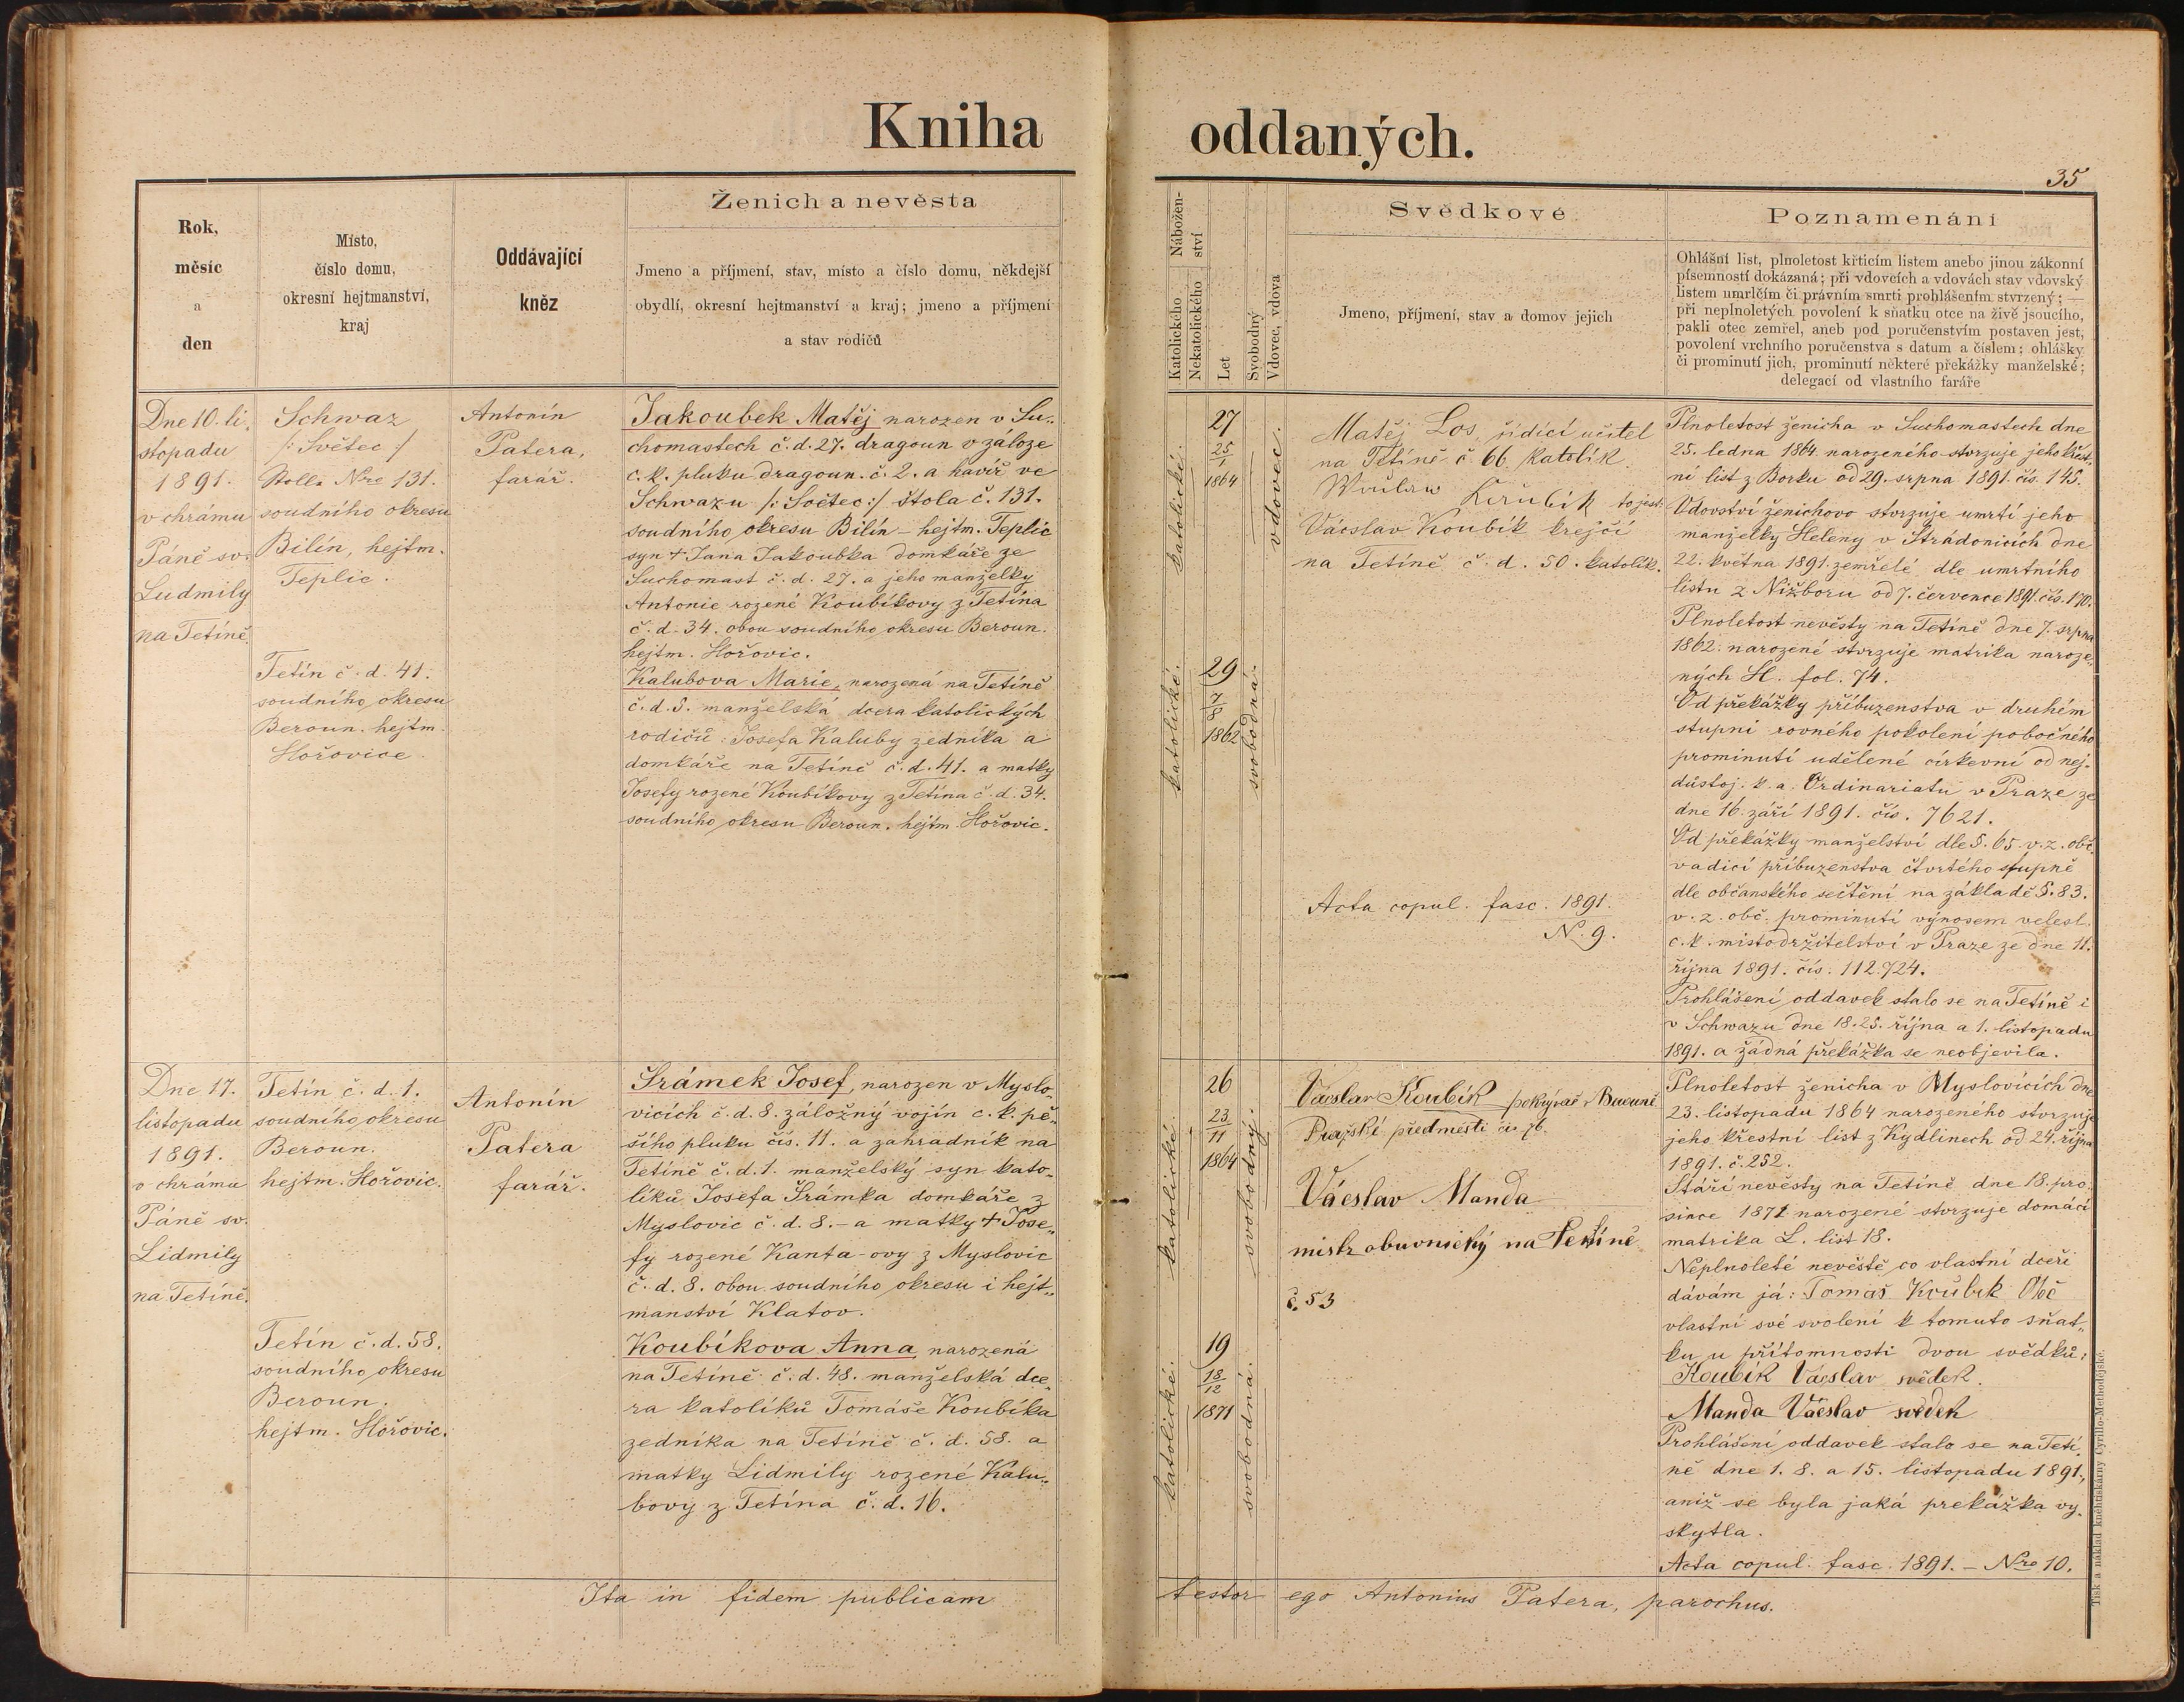 Kniha oddaných.
35
Rok,
měsíc
a
den
Místo,
číslo domu,
okresní hejtmanství,
kraj
Oddávající
kněz
Ženich a nevěsta
Jmeno a příjmení, stav, místo a číslo domu, někdejší
obydlí, okresní hejtmanství a kraj; jmeno a příjmení
a stav rodičů
Nábožen-
ství
Katolického
Nekatolického
Let
Svobodný
Vdovec, vdova
Svědkové
Jmeno, příjmení, stav a domov jejich
Poznamenání
Ohlášní list, plnoletost křticím listem anebo jinou zákonní
písemností dokázaná; při vdovcích a vdovách stav vdovský
listem umrlčím či právním smrti prohlášením stvrzený; —
při neplnoletých povolení k sňatku otce na živě jsoucího,
pakli otec zemřel, aneb pod poručenstvím postaven jest,
povolení vrchního poručenstva s datum a číslem; ohlášky
či prominutí jich, prominutí některé překážky manželské;
delegací od vlastního faráře
Dne 10. li-
stopadu
1891.
v chrámu
Páně sv.
Ludmily
na Tetíně.
Schwaz
/: Světec :/
Stolla Nro 131.
soudního okresu
Bilín, hejtm.
Teplic.
Tetín č. d. 41.
soudního okresu
Beroun. hejtm.
Hořovice
Antonín
Patera,
farář.
Jakoubek Matěj narozen v Su-
chomastech č. d. 27. dragoun v záloze
c. k. pluku dragoun. č. 2. a havíř ve
Schwazu /: Světec :/ štola č. 131.
soudního okresu Bilín – hejtm. Teplic
syn + Jana Jakoubka domkáře ze
Suchomast č. d. 27. a jeho manželky
Antonie rozené Koubíkovy z Tetína
č. d. 34. obou soudního okresu Beroun.
hejtm. Hořovic.
Kalubova Marie, narozená na Tetíně
č. d. 5. manželská dcera katolických
rodičů: Josefa Kaluby zedníka a
domkáře na Tetíně č. d. 41. a matky
Josefy rozené Koubíkovy z Tetína č. d. 34.
soudního okresu Beroun. hejtm. Hořovic.
katolické.
27
25/1
1864
vdovec.
katolické.
29
7/8
1862
svobodná.
Matěj Los, řídící učitel
na Tetíně č. 66. katolík.
to jest:
Václav Koubík krejčí
na Tetíně č. d. 50. katolík.
Acta copul. fasc. 1891.
N. 9.
Plnoletost ženicha v Suchomastech dne
25. ledna 1864. narozeného stvrzuje jeho křest-
ní list z Borku od 29. srpna 1891. čís. 145.
Vdovství ženichovo stvrzuje umrtí jeho
manželky Heleny v Stradonicích dne
22. května 1891. zemřelé dle umrtního
listu z Nižboru od 7. července 1891. čís. 170.
Plnoletost nevěsty na Tetíně dne 7. srpna
1862. narozené stvrzuje matrika naroze-
ných H. fol. 74.
Od překážky příbuzenstva v druhém
stupni rovného pokolení pobočného
prominutí udělené církevní od nej-
důstoj. k. a. Ordinariatu v Praze ze
dne 16. září 1891. čís. 7621.
Od překážky manželství dle §. 65. v. z. obč.
vadící příbuzenstva čtvrtého stupně
dle občanského sečtění na základě §. 83.
v. z. obč. prominutí výnosem velesl.
c. k. místodržitelství v Praze ze dne 11.
října 1891. čís. 112.724.
Prohlášení oddavek stalo se na Tetíně i
v Schwazu dne 18. 25. října a 1. listopadu
1891. a žádná překážka se neobjevila.
Dne 17.
listopadu
1891.
v chrámu
Páně sv.
Lidmily
na Tetíně.
Tetín č. d. 1.
soudního okresu
Beroun.
hejtm. Hořovic.
Tetín č. d. 58.
soudního okresu
Beroun.
hejtm. Hořovic.
Antonín
Patera
farář.
Šrámek Josef, narozen v Myslo-
vicích č. d. 8. záložný vojín c. k. pě-
šího pluku čís. 11. a zahradník na
Tetíně č. d. 1. manželský syn kato-
líků Josefa Šrámka domkáře z
Myslovic č. d. 8. – a matky + Jose-
fy rozené Kanta-ovy z Myslovic
č. d. 8. obou soudního okresu i hejt-
manství Klatov.
Koubíkova Anna narozená
na Tetíně č. d. 48. manželská dce-
ra katolíků Tomáše Koubíka
zedníka na Tetíně č. d. 58. a
matky Lidmily rozené Kalu-
bovy z Tetína č. d. 16.
katolické.
26
23/11
1864
svobodný.
katolické.
19
18/12
1871
svobodná.
Václav Koubík pokrývač v Berouně
Pražské předměstí čís 76.
Václav Manda
mistr obuvnický na Tetíně
č. 53
Plnoletost ženicha v Myslovicích dne
23. listopadu 1864 narozeného stvrzuje
jeho křestní list z Kydlinech od 24. října
1891. č. 252.
Stáří nevěsty na Tetíně dne 18. pro-
since 1871 narozené stvrzuje domácí
matrika L. list 18.
Neplnoleté nevěstě, co vlastní dceři
dávám já: Tomaš Koubek Otec
vlastní své svolení k tomuto sňat-
ku u přítomnosti dvou svědků:
Koubík Václav svědek.
Manda Václav svědek
Prohlášení oddavek stalo se na Tetí-
ně dne 1. 8. a 15. listopadu 1891.,
aniž se byla jaká prekážka vy-
skytla.
Acta copul. fasc. 1891. – Nro 10.
Ita in fidem publicam testor ego Antonius Patera, parochus.
Tisk a náklad kněhtiskárny Cyrillo-Methodějské.